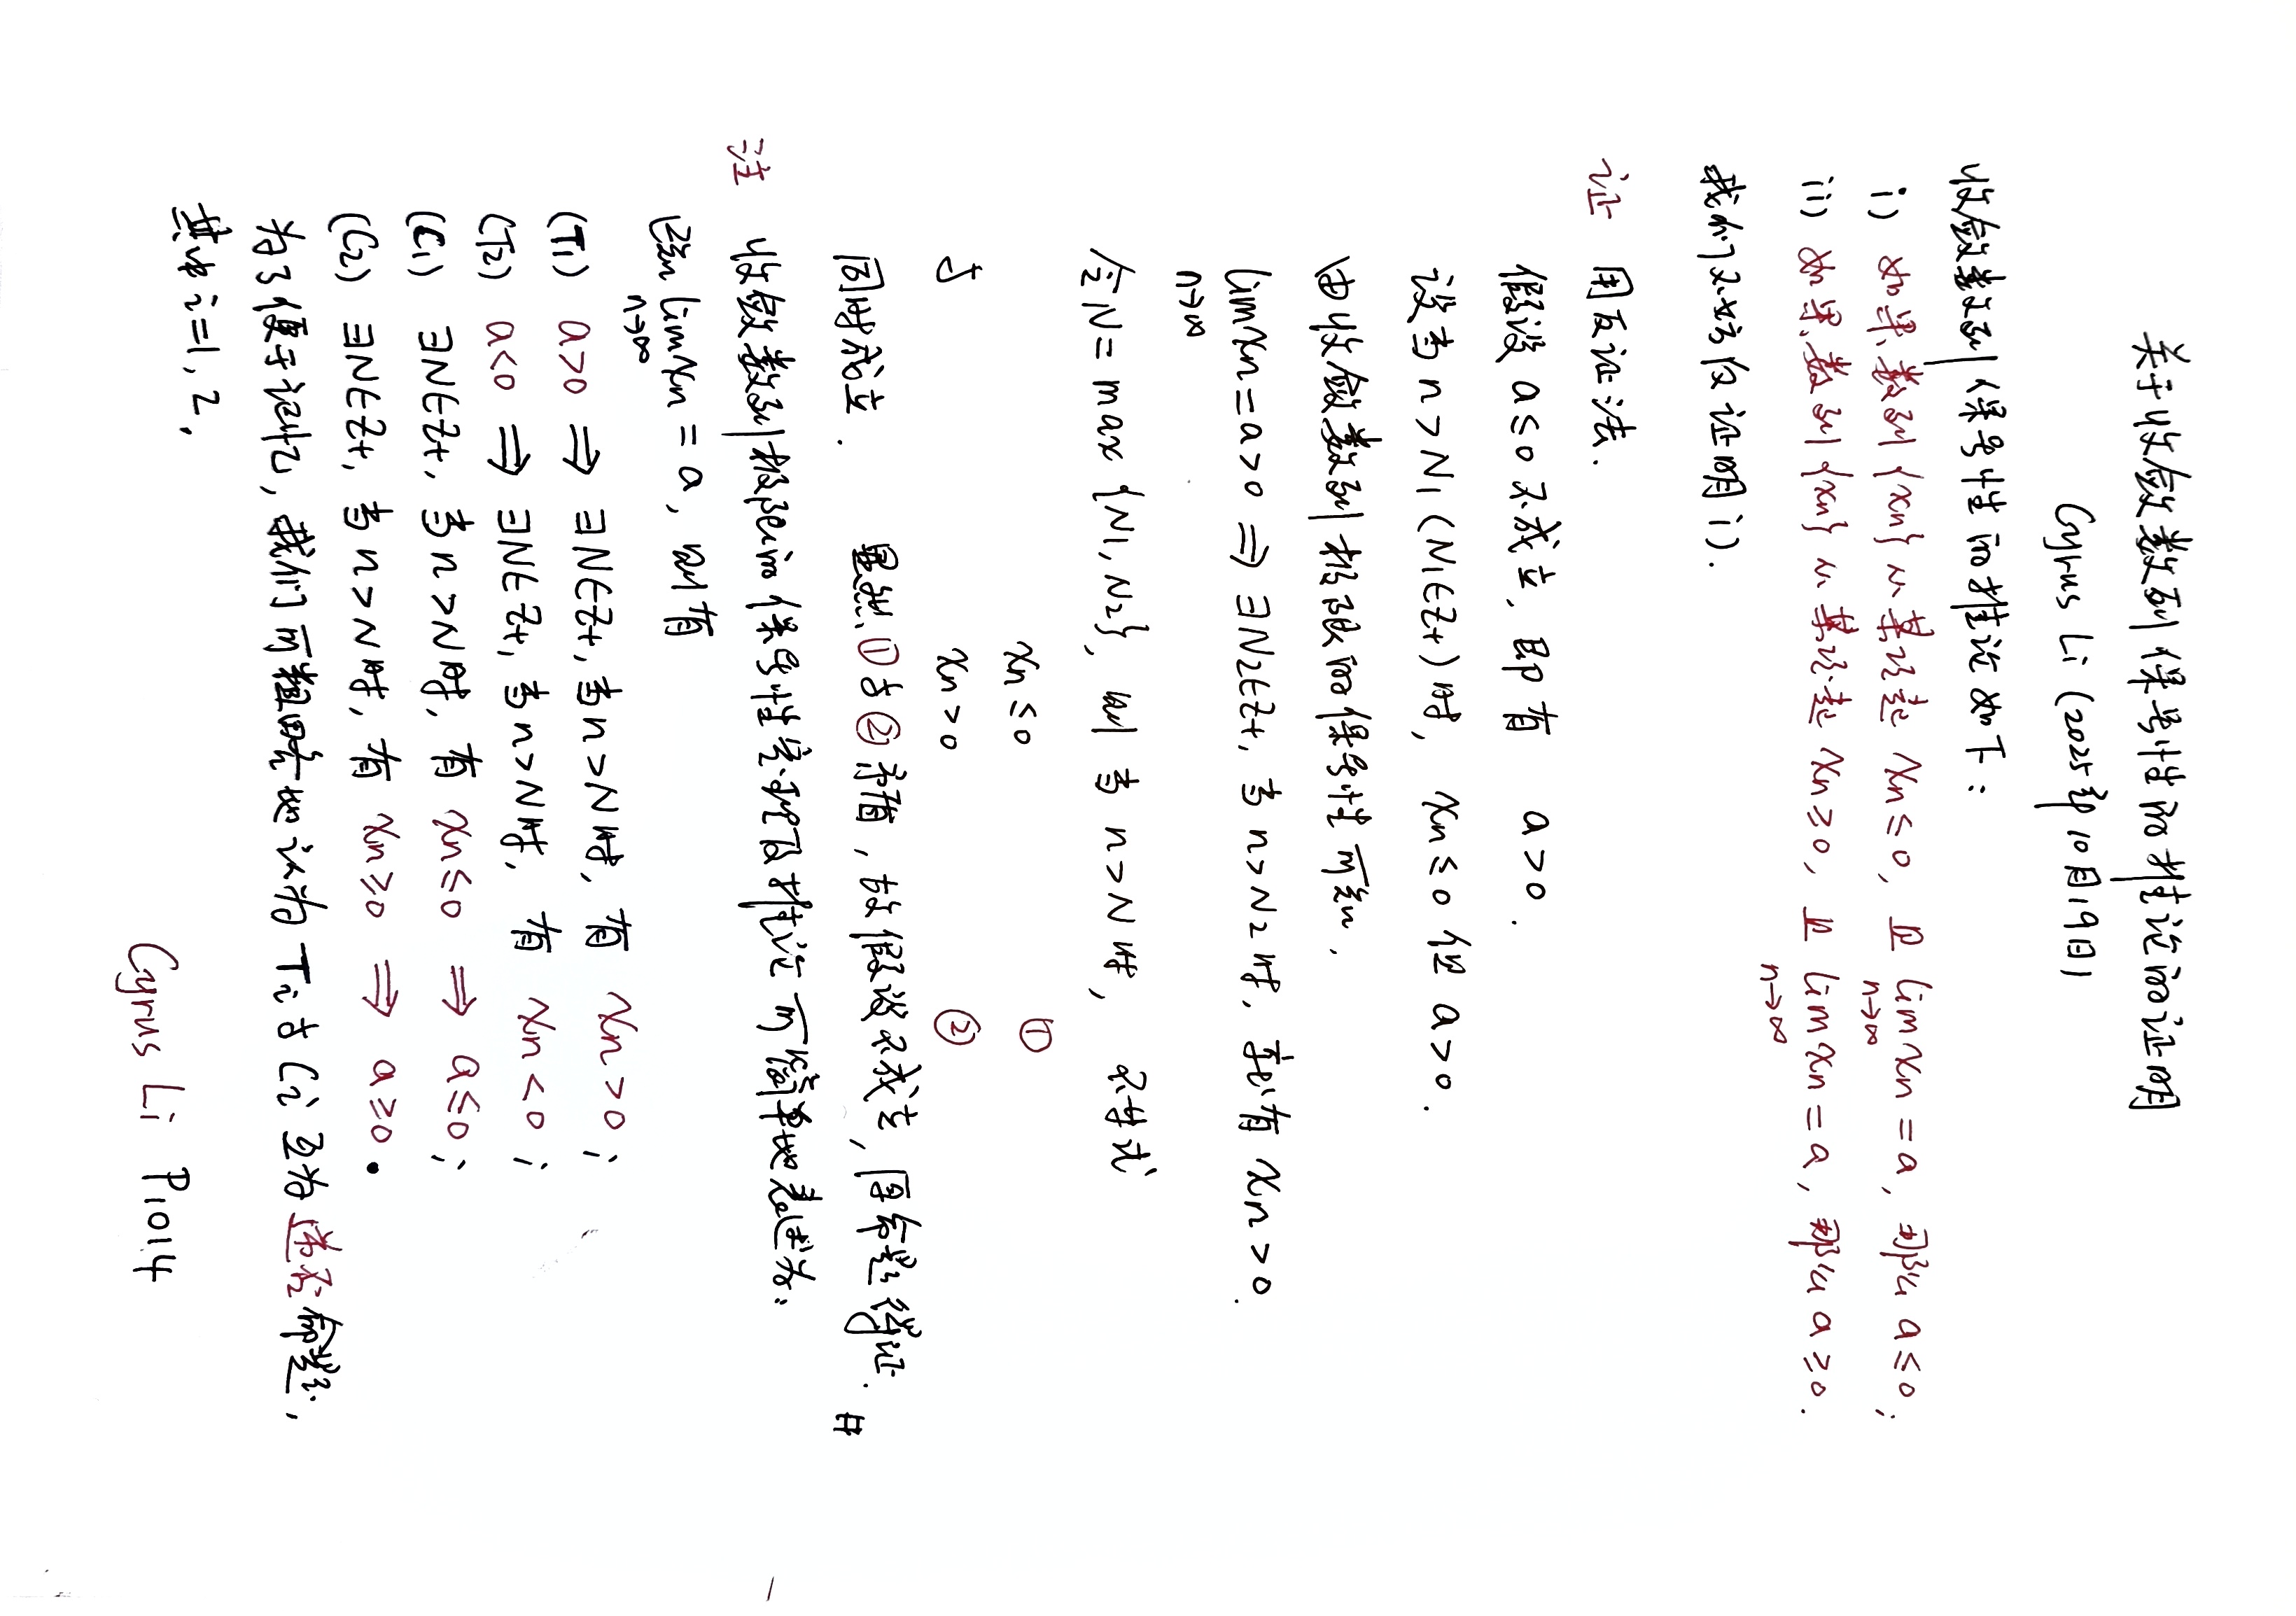 关于收敛数列保号性的推论的证明
Cyrus Li (2025年10月19日)
收敛数列保号性的推论如下：
i) 如果数列{xn}从某项起 xn≤0, 且 lim xn=a, 那么 a≤0;
n→∞
ii) 如果数列{xn}从某项起 xn≥0, 且 lim xn=a, 那么 a≥0.
n→∞
我们不妨仅证明i).
证 用反证法.
假设 a≤0 不成立, 即有 a>0.
设当 n>N1 (N1∈Z+) 时, xn≤0 但 a>0.
由收敛数列极限的保号性可知,
lim xn=a>0 ⇒ ∃N2∈Z+, 当 n>N2 时, 就有 xn>0.
n→∞
令N=max{N1,N2}, 则当 n>N 时, 不等式
xn≤0 ①
与 xn>0 ②
同时成立. 显然,①与②矛盾,故假设不成立,原命题得证. #
注 收敛数列极限的保号性定理及推论可简单地表述为:
已知 lim xn=a, 则有
n→∞
(T1) a>0 ⇒ ∃N∈Z+, 当n>N时, 有 xn>0;
(T2) a<0 ⇒ ∃N∈Z+, 当n>N时, 有 xn<0;
(C1) ∃N∈Z+, 当n>N时, 有 xn≤0 ⇒ a≤0;
(C2) ∃N∈Z+, 当n>N时, 有 xn≥0 ⇒ a≥0.
为了便于记忆, 我们可粗略地认为 Ti 与 Ci 互为逆否命题,
其中 i=1, 2.
Cyrus Li P1014